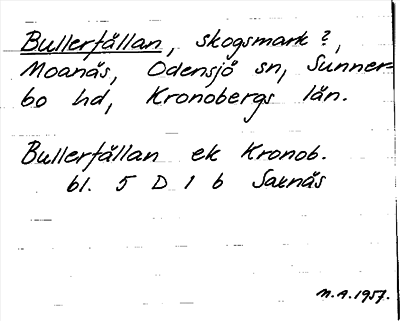 Bullerfällan, skogsmark?,
Moanäs, Odensjö sn, Sunner-
bo hd, Kronobergs län.
Bullerfällan ek Kronob.
bl. 5 D 1 b Saxnäs
M.A. 1957.